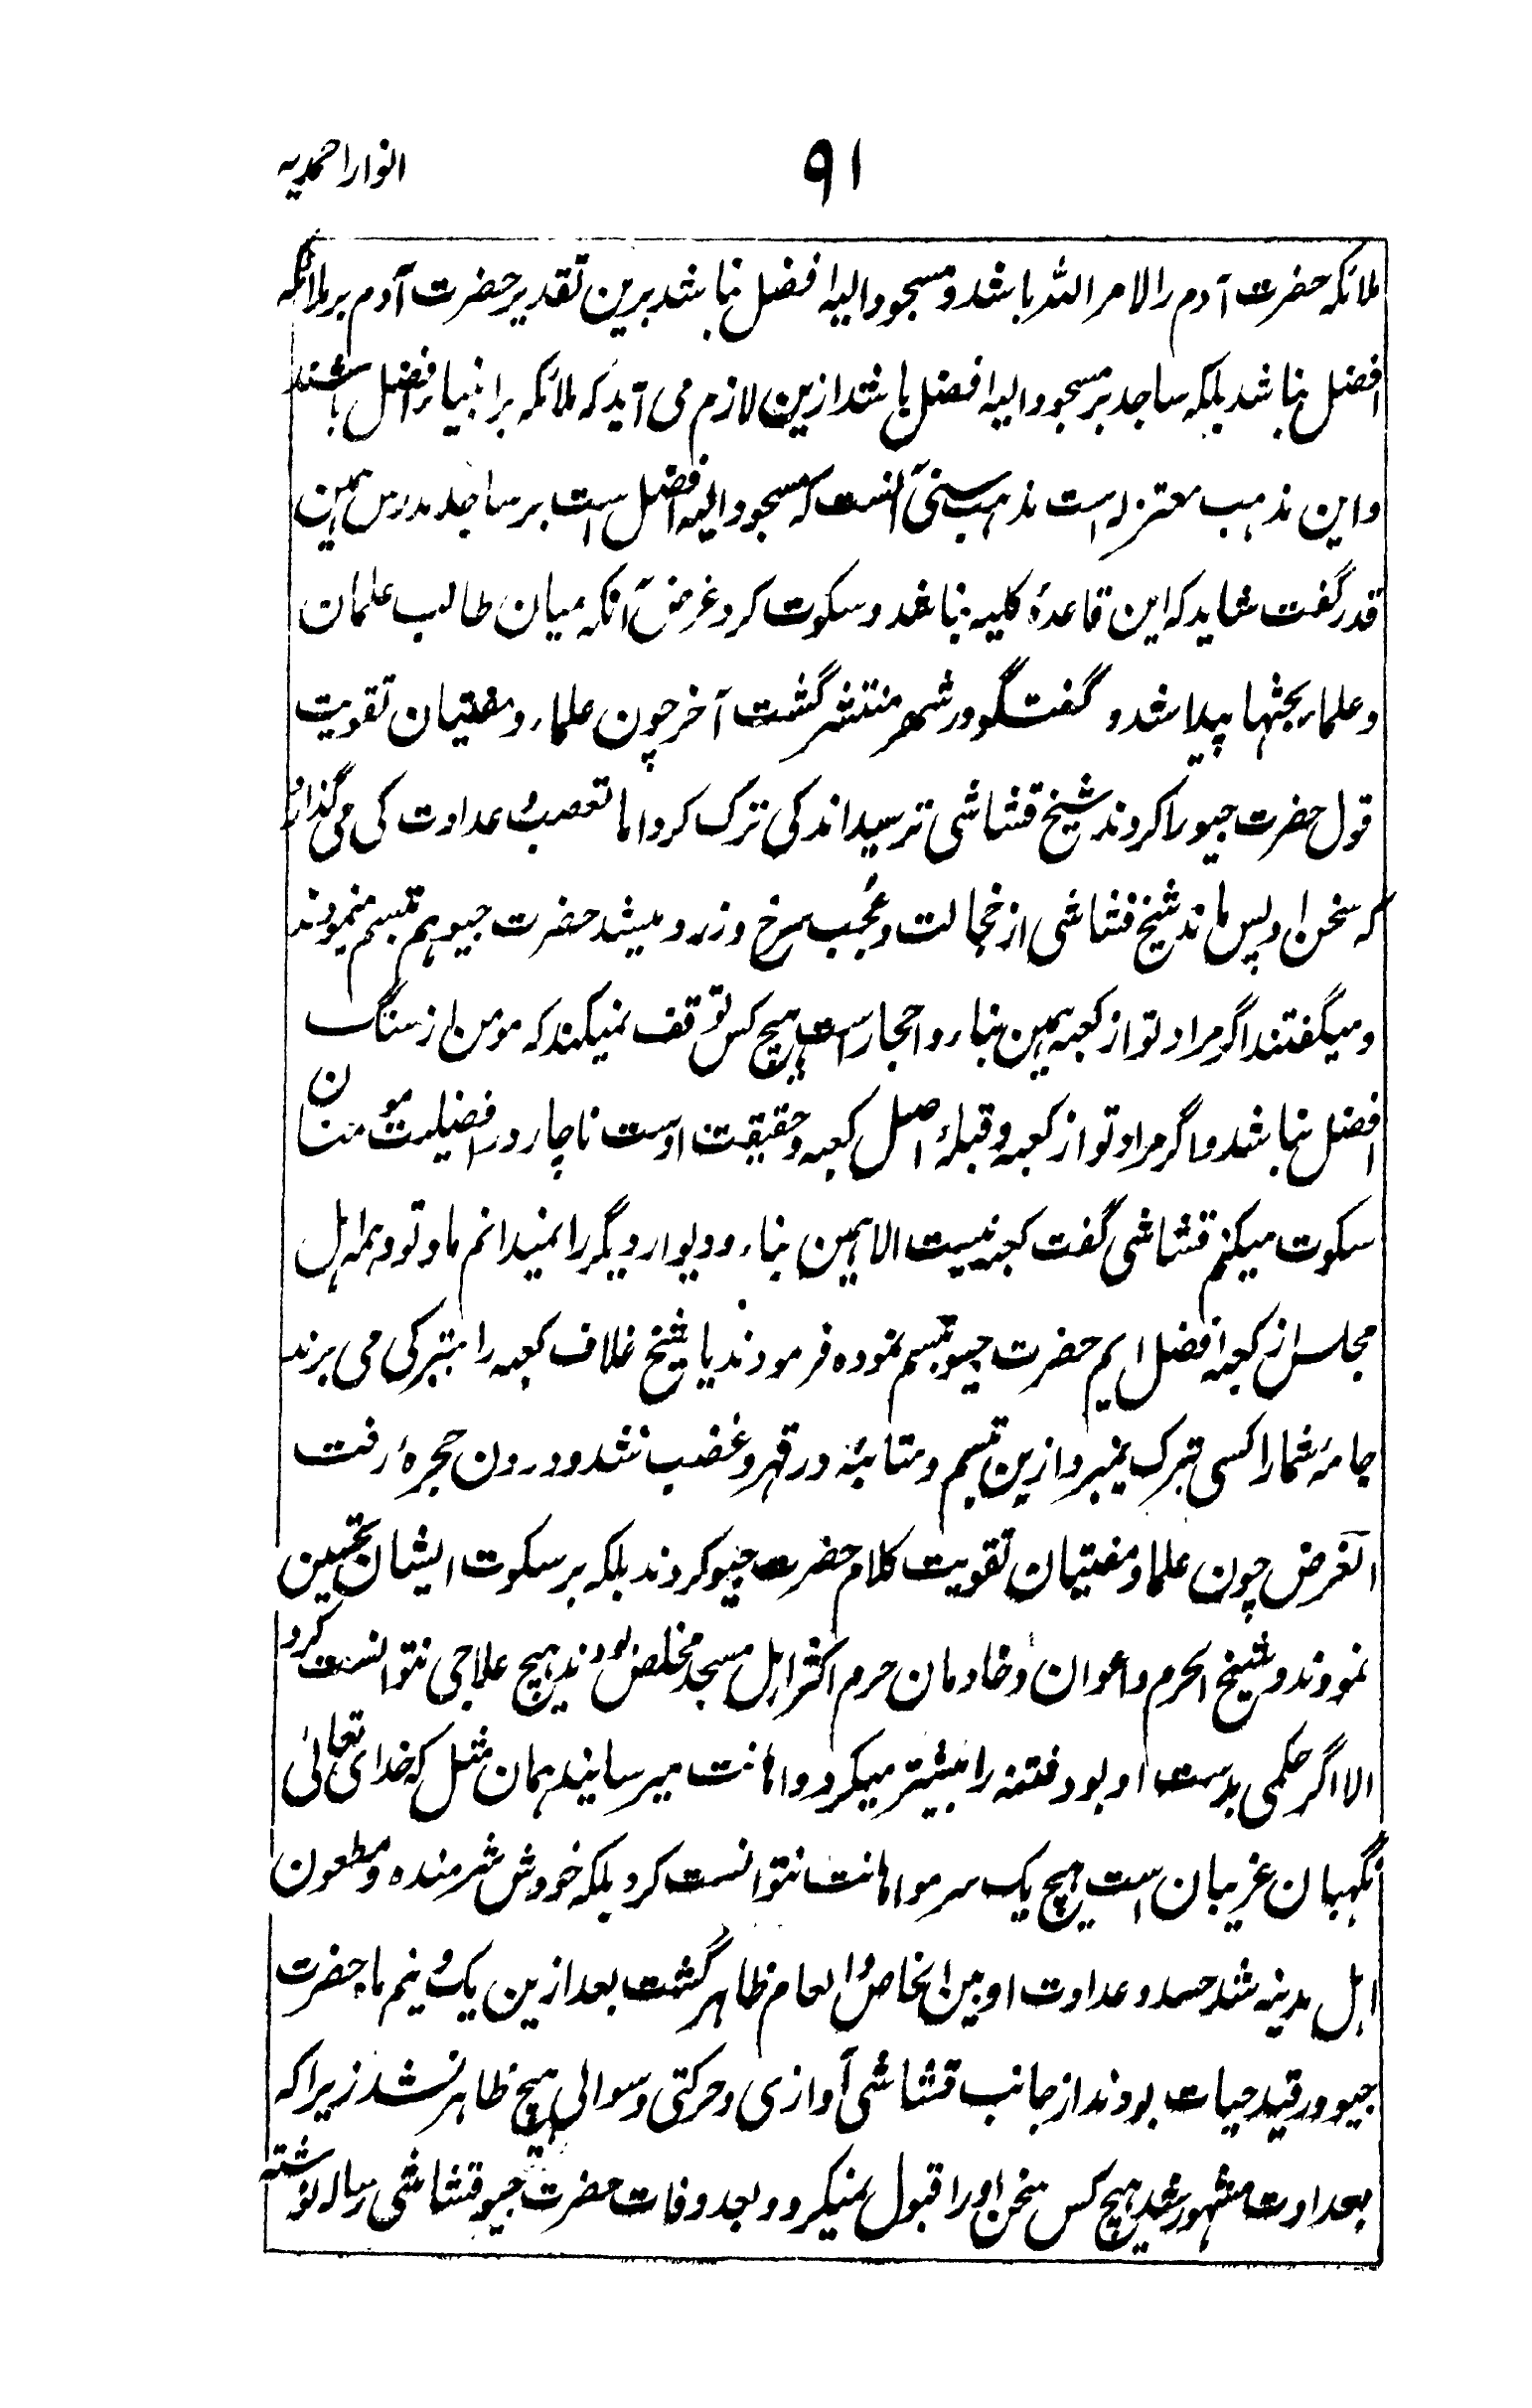 انوار احمدیه
۹۱
ملائکه حضرت آدم را لامر الله باشد و مسجود الیه افضل نباشد برین تقدیر حضرت آدم بر ملائکه
افضل نباشد بلکه ساجد بر مسجود الیه افضل باشد ازین لازم می آید که ملائکه بر انبیاء افضل باشند
و این مذهب معتزله است مذهب سنی آنست که مسجود الیه افضل است بر ساجد مدرس همین
قدر گفت شاید که این قاعدهٔ کلیه نباشد و سکوت کرد غرض آنکه میان طالب علمان
و علماء بحثها پیدا شد و گفتگو در شهر منتشر گشت آخر چون علماء و مفتیان تقویت
قول حضرت جیو را کردند شیخ قشاشی ترسید اندکی ترک کرد اما تعصب و عداوت کی می گذارد
که سخن او پس ماند شیخ قشاشی از خجالت و عجب سرخ و زرد میشد حضرت جیو هم تبسم مینمودند
و میگفتند اگر مراد تو از کعبه همین بناء و احجار است هیچ کس توقف نمیکند که مومن از سنگ
افضل نباشد و اگر مراد تو از کعبه و قبلهٔ اصل کعبه و حقیقت اوست ناچار در افضلیت مؤمنان
سکوت میکنم قشاشی گفت کعبه نیست الا همین بناء و دیوار دیگر را نمیدانم ما و تو و همه اهل
مجلس از کعبه افضل ایم حضرت جیو تبسم نموده فرمودند یا شیخ غلاف کعبه را بتبرکی می برند
جامهٔ شما را کسی تبرک نمیبرد ازین تبسم و متانبه در قهر و غضب نشد و درون حجرهٔ رفت
الغرض چون علما و مفتیان تقویت کلام حضرت جیو کردند بلکه بر سکوت ایشان تحسین
نمودند و شیخ الحرم و اعوان و خادمان حرم اکثر اهل مسجد مخلص بودند هیچ علاجی نتوانست کرد
الا اگر حکمی بدست او بود فتنه را بیشتر میکرد و اهانت میرسانید همان مثل که خدای تعالیٰ
نگهبان غریبان است هیچ یک سر مو اهانت نتوانست کرد بلکه خودش شرمنده و مطعون
اهل مدینه شد حسد و عداوت او بین الخاص و العام ظاهر گشت بعد ازین یک و نیم ماه حضرت
جیو در قید حیات بودند از جانب قشاشی آوازی و حرکتی و سوالی هیچ ظاهر نشد زیرا که
بعداوت مشهور شد هیچ کس سخن او را قبول نمیکرد و بعد وفات حضرت جیو قشاشی رساله نوشته